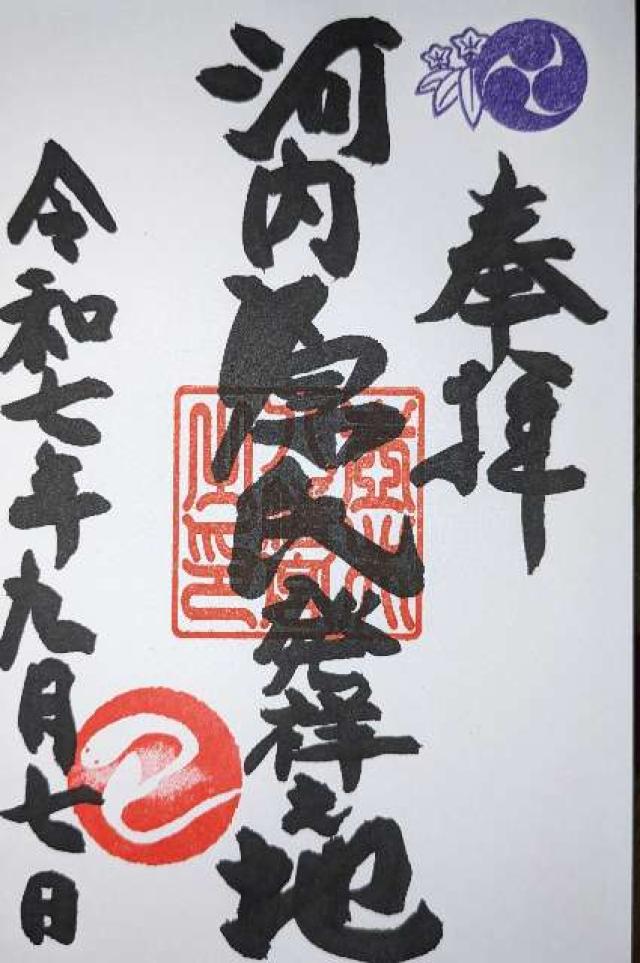 奉拝
河内源氏発祥之地
令和七年九月七日